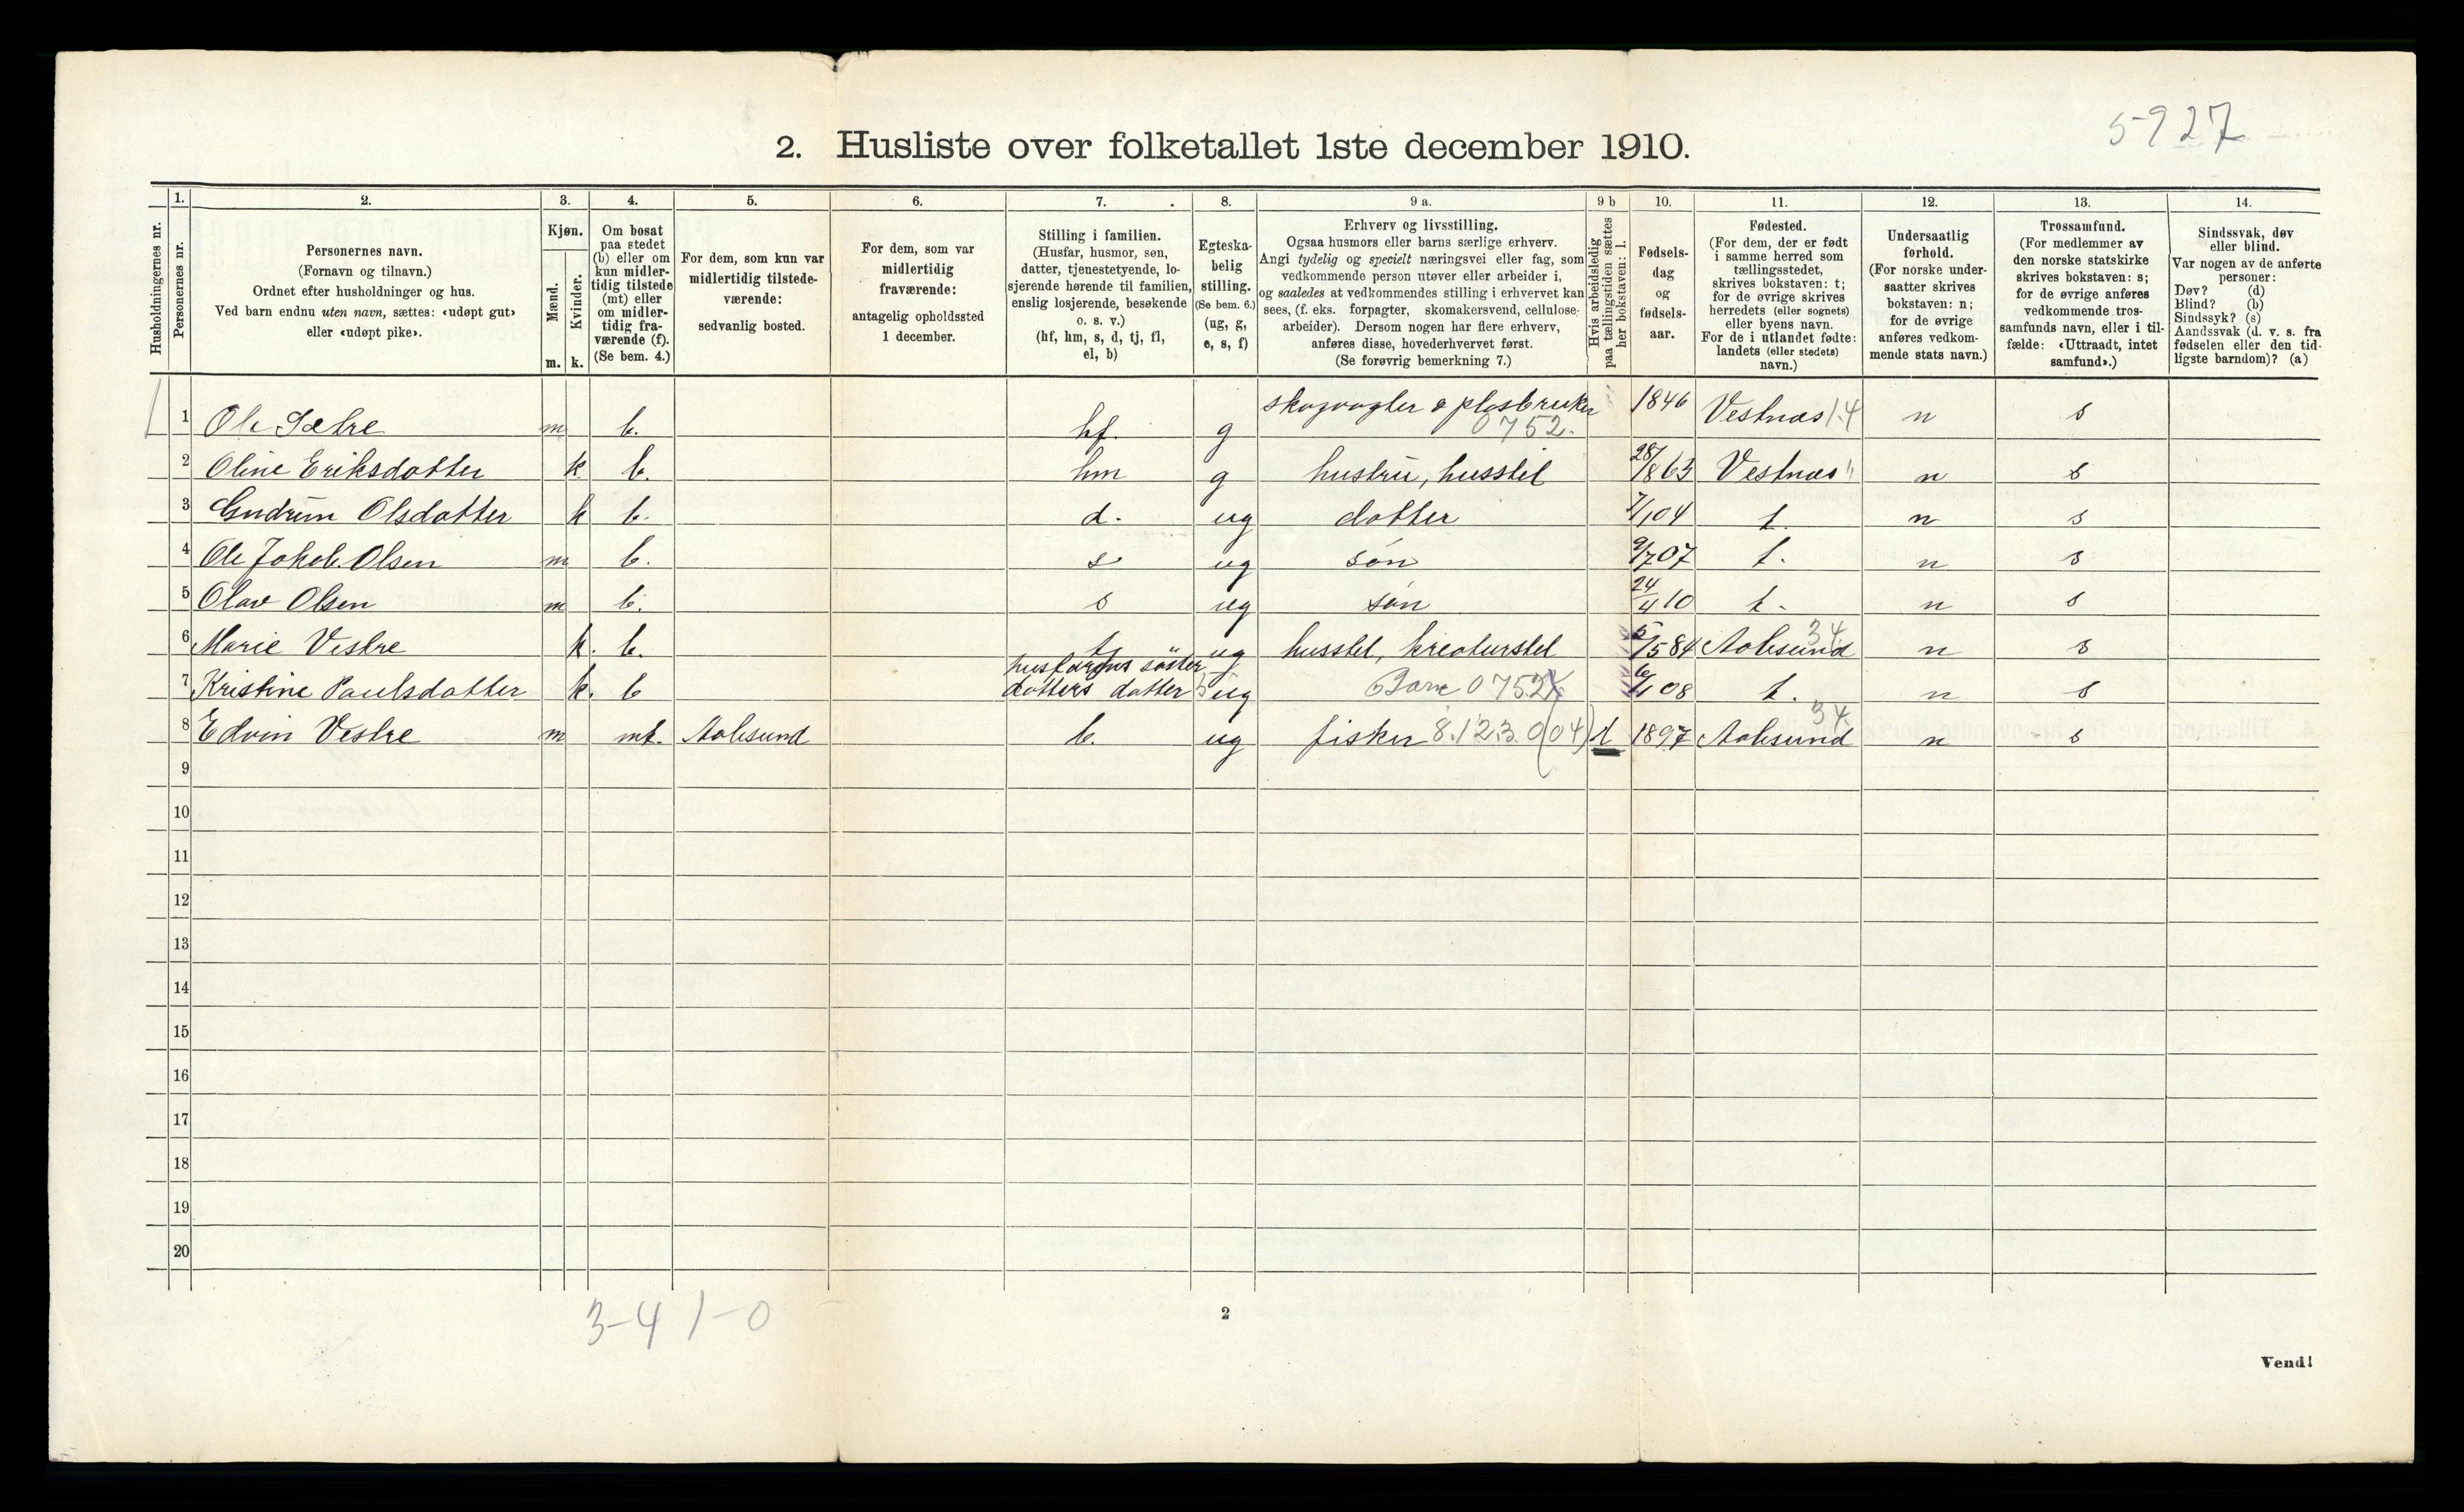 5927
2. Husliste over folketallet 1ste december 1910.
Husholdningernes nr.
1.
Personernes nr.
2.
Personernes navn.
(Fornavn og tilnavn.)
Ordnet efter husholdninger og hus.
Ved barn endnu uten navn, sættes: «udøpt gut»
eller «udøpt pike».
3.
Kjøn.
Mænd.
Kvinder.
m. k.
4.
Om bosat
paa stedet
(b) eller om
kun midler-
tidig tilstede
(mt) eller
om midler-
tidig fra-
værende (f).
(Se bem. 4.)
5.
For dem, som kun var
midlertidig tilstede-
værende:
sedvanlig bosted.
6.
For dem, som var
midlertidig
fraværende:
antagelig opholdssted
1 december.
7.
Stilling i familien.
(Husfar, husmor, søn,
datter, tjenestetyende, lo-
sjerende hørende til familien,
enslig losjerende, besøkende
o. s. v.)
(hf, hm, s, d, tj, fl,
el, b)
8.
Egteska-
belig
stilling.
(Se bem. 6.)
(ug, g,
e, s, f)
9 a.
Erhverv og livsstilling.
Ogsaa husmors eller barns særlige erhverv.
Angi tydelig og specielt næringsvei eller fag, som
vedkommende person utøver eller arbeider i,
og saaledes at vedkommendes stilling i erhvervet kan
sees, (f. eks. forpagter, skomakersvend, cellulose-
arbeider). Dersom nogen har flere erhverv,
anføres disse, hovederhvervet først.
(Se forøvrig bemerkning 7.)
9 b
Hvis arbeidsledig
paa tællingstiden sættes
her bokstaven: l.
10.
Fødsels-
dag
og
fødsels-
aar.
11.
Fødested.
(For dem, der er født
i samme herred som
tællingsstedet,
skrives bokstaven: t;
for de øvrige skrives
herredets (eller sognets)
eller byens navn.
For de i utlandet fødte:
landets (eller stedets)
navn.)
12.
Undersaatlig
forhold.
(For norske under-
saatter skrives
bokstaven: n;
for de øvrige
anføres vedkom-
mende stats navn.)
13.
Trossamfund.
(For medlemmer av
den norske statskirke
skrives bokstaven: s;
for de øvrige anføres
vedkommende tros-
samfunds navn, eller i til-
fælde: «Uttraadt, intet
samfund».)
14.
Sindssvak, døv
eller blind.
Var nogen av de anførte
personer:
Døv? (d)
Blind? (b)
Sindssyk? (s)
Aandssvak (d. v. s. fra
fødselen eller den tid-
ligste barndom)? (a)
1 Ole Sætre m b. hf. g skogvogter & plasbruker 0752. 1846 Vestnæs 14 n s
2 Oline Eriksdatter k b. hm g hustru, husstel 28/ 1863 Vestnæs " n s
3 Gudrun Olsdatter k b. d. ug datter 7/1 04 t. n s
4 Ole Jakob Olsen m b. s ug søn 9/7 07 t. n s
5 Olav Olsen m b. s ug søn 24/4 10 t. n s
6 Marie Vestre k. b. ug husstel, kreaturstel 5/5 84 Aalesund 34 n s
7 Kristine Paulsdatter k. b husfarens søster datters datter ug Barn 0752 6/1 08 t. n s
8 Edvin Vestre m mt. Aalesund b. ug fisker 8.123.0(04) l 1897 Aalesund 34 n s
9
10
11
12
13
14
15
16
17
18
19
20
3-4 1-0
2
Vend!